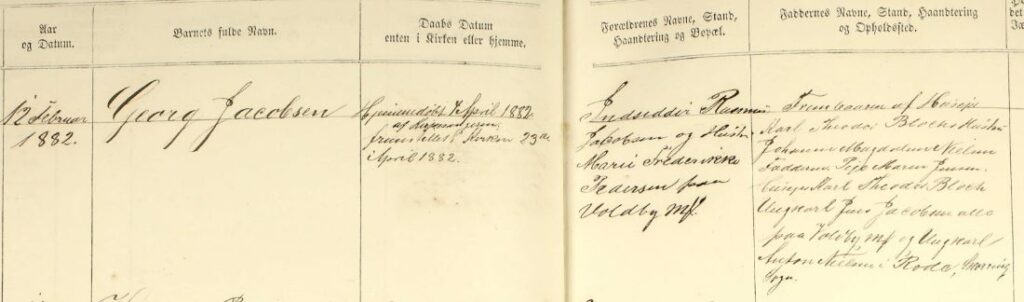 Aar
og Datum.
Barnets fulde Navn.
Daabs Datum
enten i Kirken eller hjemme.
Forældrenes Navne, Stand,
Haandtering og Bopæl.
Faddernes Navne, Stand, Haandtering
og Opholdssted.
12 Februar
1882.
Georg Jacobsen
Hjemmedøbt 7 April 1882
af
Kirken 23de
i April 1882.
Indsidder Rasmus
Jacobsen og Hustru
Marie Frederikke
Pedersen paa
Voldby Mf.
Frembaaren af Husejer
Karl Theodor Blochs Hustru
Johanne Magdalene Nielsen
Faddere: Pige Maren Jensen
Husejer Karl Theodor Bloch
Ungkarl Jens Jacobsen alle
paa Voldby Mf og Ungkarl
Anton Nielsen i Rode,
Sogn.